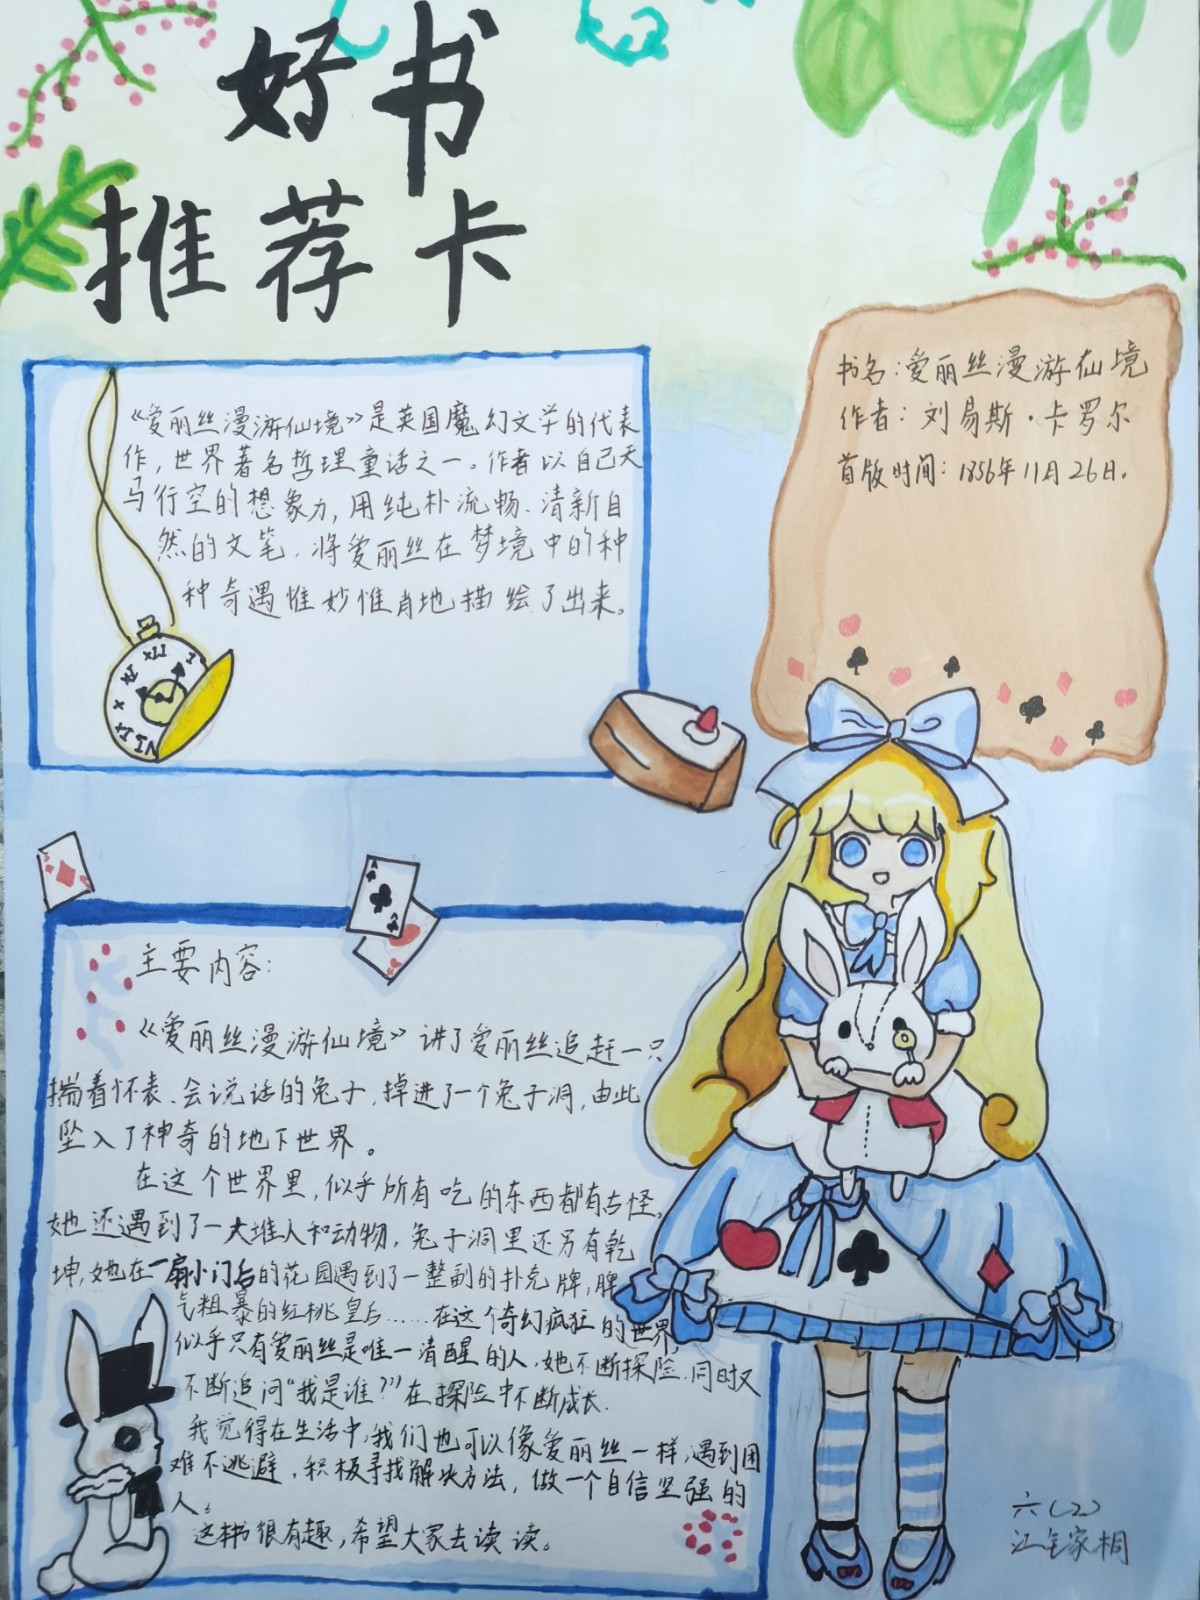 好书
推荐卡
书名：爱丽丝漫游仙境
作者：刘易斯·卡罗尔
首版时间：1856年11月26日.
《爱丽丝漫游仙境》是英国魔幻文学的代表
作，世界著名哲理童话之一。作者以自己天
马行空的想象力，用纯朴流畅、清新自
然的文笔，将爱丽丝在梦境中的种
种奇遇惟妙惟肖地描绘了出来。
主要内容：
《爱丽丝漫游仙境》讲了爱丽丝追赶一只
揣着怀表、会说话的兔子，掉进了一个兔子洞，由此
坠入了神奇的地下世界。
在这个世界里，似乎所有吃的东西都有古怪。
她还遇到了一大堆人和动物，兔子洞里还另有乾
坤，她在一扇小门后的花园遇到了一整副的扑克牌，脾
气粗暴的红桃皇后……在这个奇幻疯狂的世界，
似乎只有爱丽丝是唯一清醒的人，她不断探险，同时又
不断追问“我是谁？”在探险中不断成长.
我觉得在生活中，我们也可以像爱丽丝一样，遇到困
难不逃避，积极寻找解决方法，做一个自信坚强的
人。
这本书很有趣，希望大家去读读。
六(2)
家桐